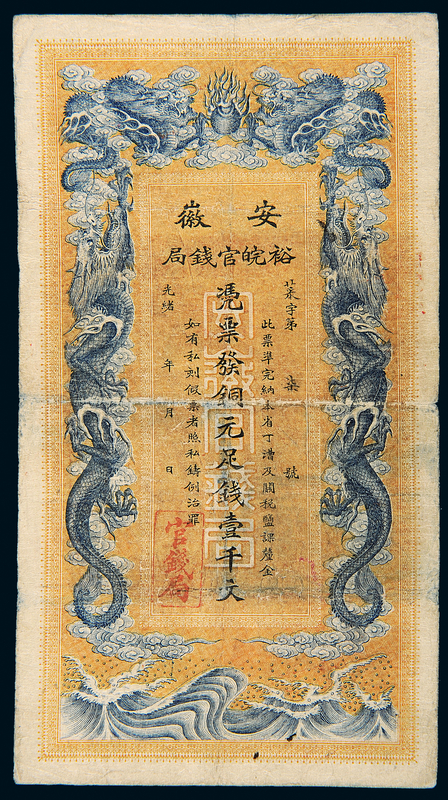 安徽
裕皖官錢局
菉字第 柒 號
此票準完納本省丁漕及關稅鹽課釐金
憑票發銅元足錢壹千文
如有私刻假票者照私鑄例治罪
光緒 年 月 日
官錢局